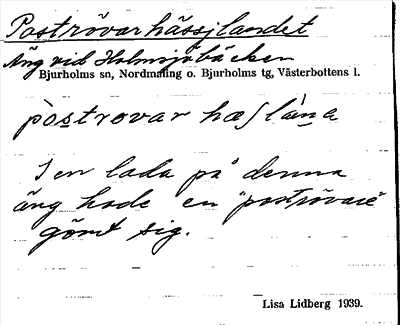 Poströvarhässjlandet
Äng vid Holmsjöbäcken
Bjurholms sn, Nordmaling o. Bjurholms tg, Västerbottens l.
I en lada på denna
äng hade en "poströvare"
gömt sig.
Lisa Lidberg 1939.